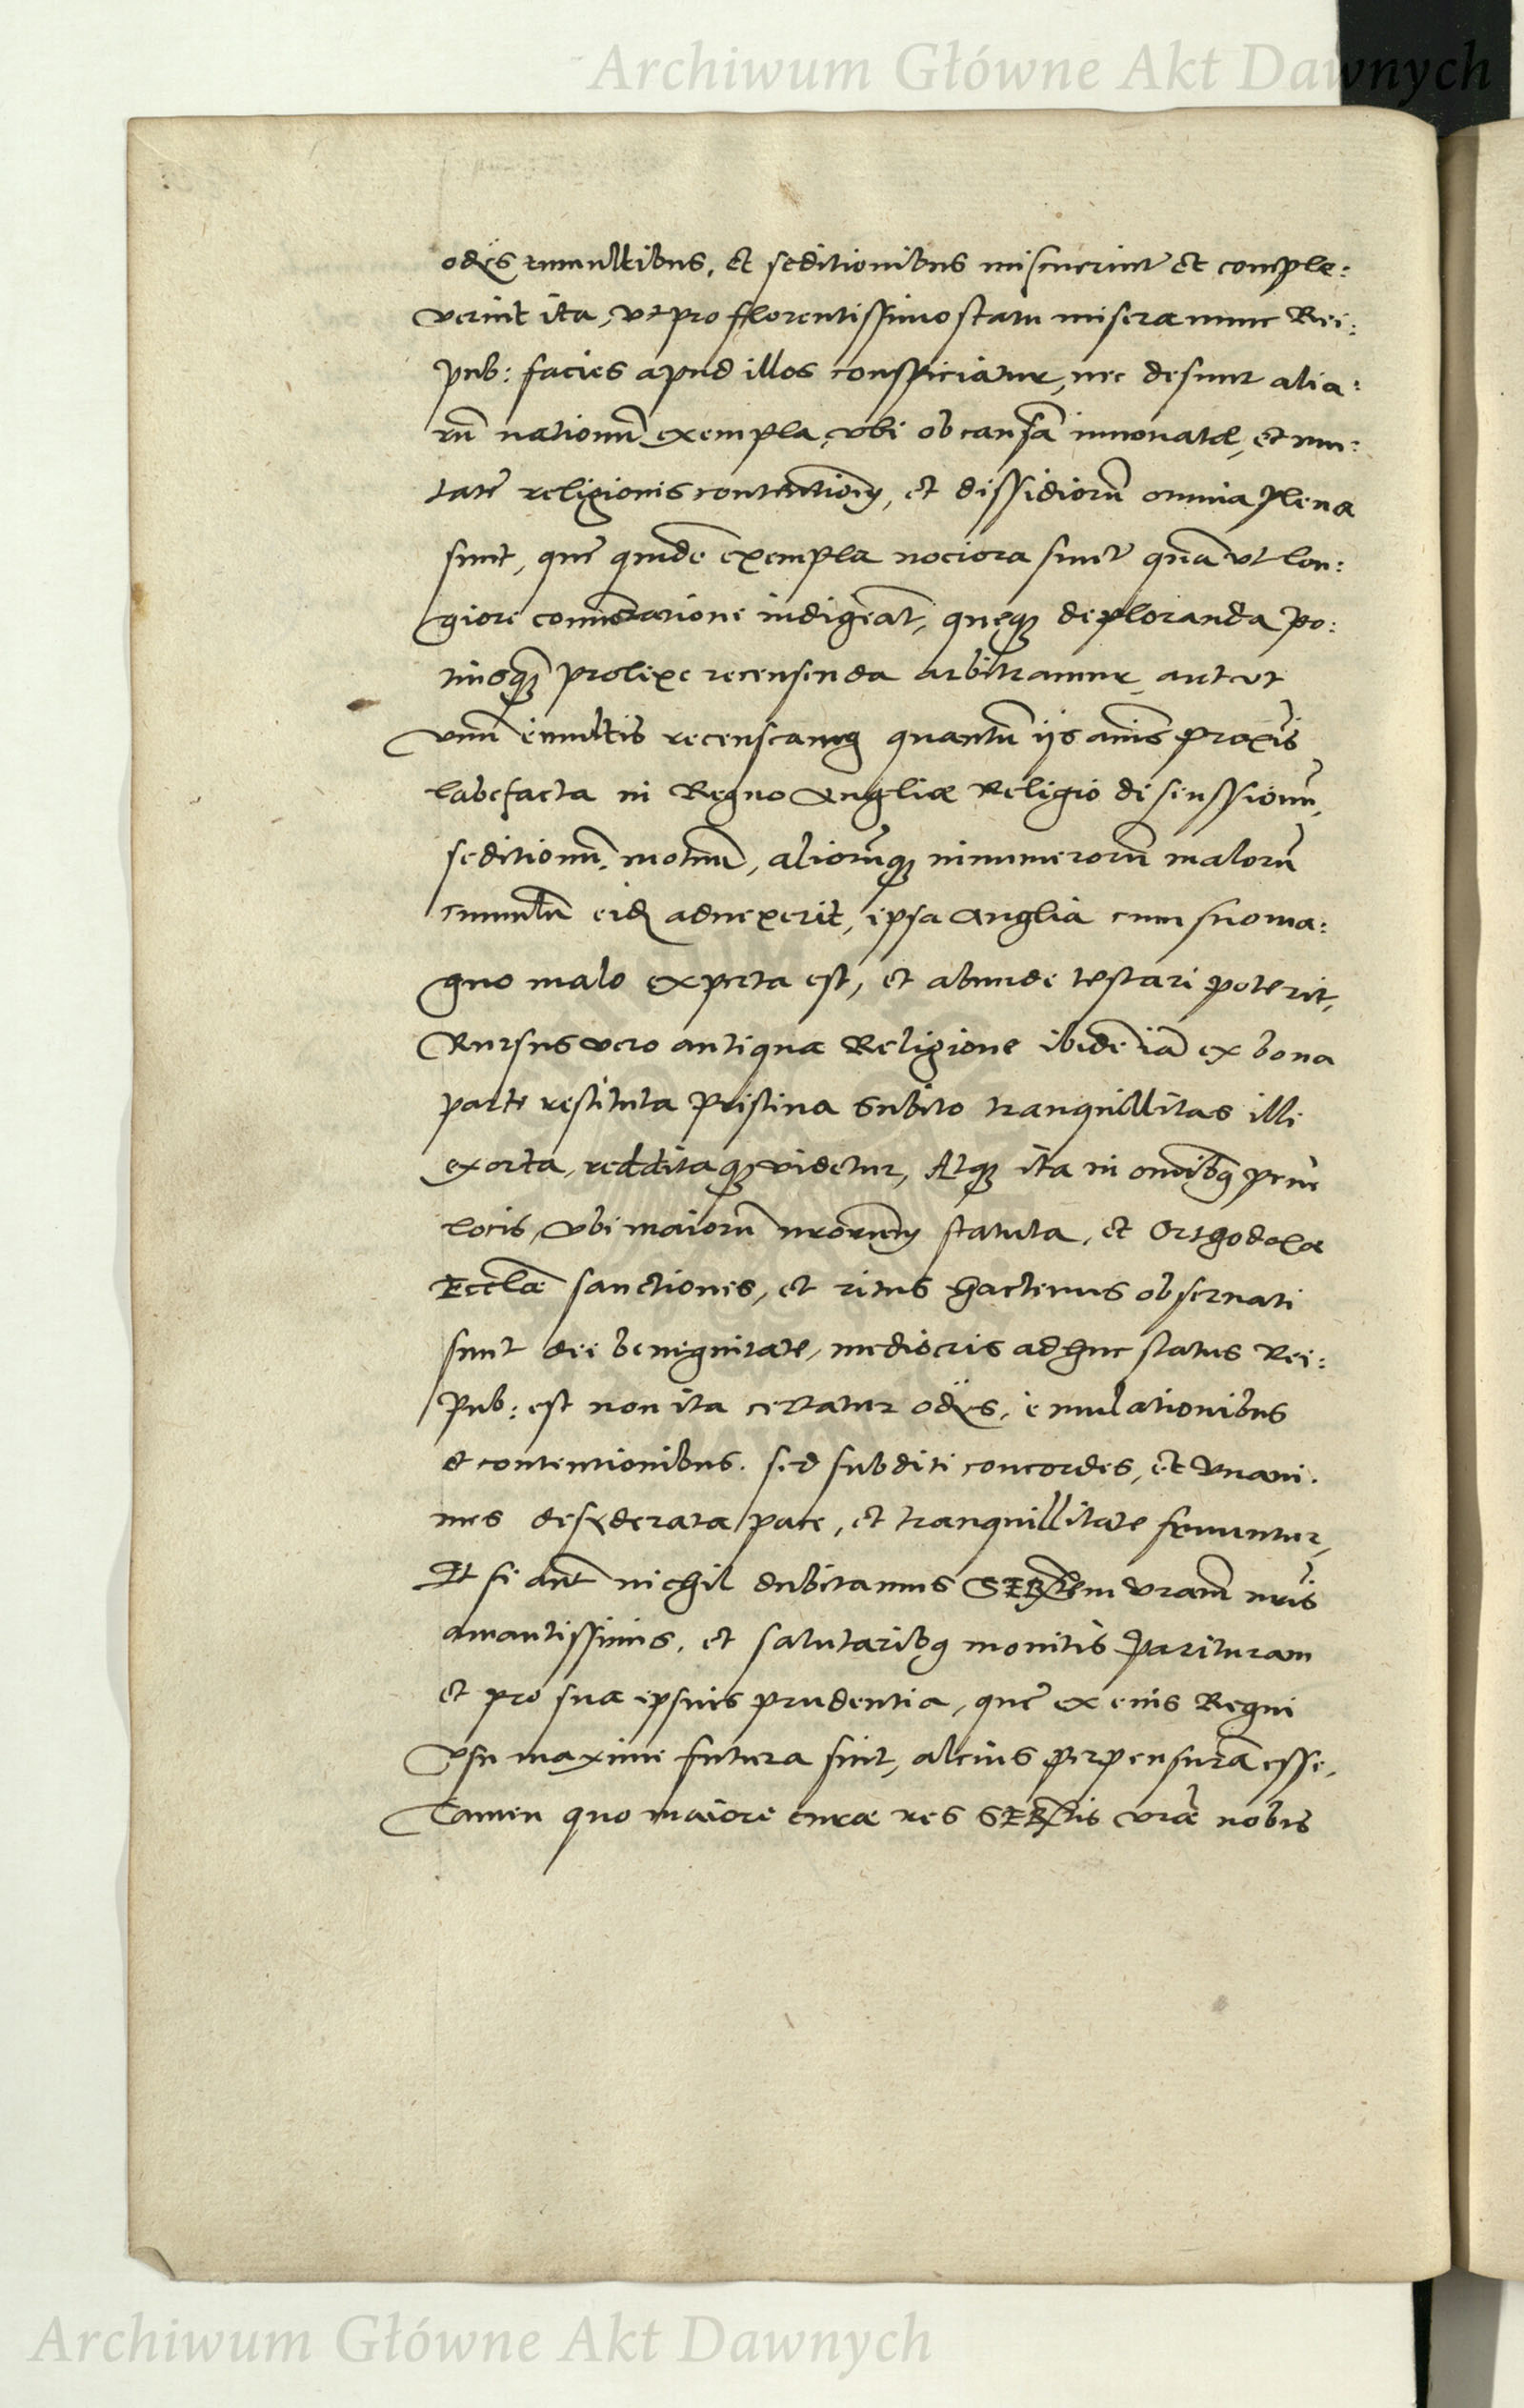 Archiwum Główne Akt Dawnych
odijs tumultibus, et seditionibus miscuerint et comple:
verint ita, vt pro florentissimo statu misera nunc Rei:
pub: facies apud illos conspiciatur, nec desunt alia:
rū nationū exempla, vbi ob causā innouatæ, et mu:
tatę religionis contentionū, et dissidiorū omnia plena
sunt, quę quidē exempla nociora sunt quā vt lon:
giore comōratione indigeāt, quęq3 deploranda po:
tiusq3 prolixe recensenda arbitramur, aut vt
vnū e multis recenseamus quantū ijs annis proxis
labefacta in Regno Angliæ Religio disenssionū,
seditionū, motuū, aliorūq3 innumerorū malorū
cumulū eid adnexerit, ipsa Anglia cum suo ma:
gno malo experta est, et abunde testari poterit,
Rursus vero antiqua Religione ibidē iā ex bona
parte restituta pristina subito tranquillitas illi
exorta, redditaq3 videtur, Atq3 ita in omibus penę
locis, vbi maiorū nrorum statuta, et Orthodoxæ
Ecclæ sanctiones, et ritus hactenus obseruati
sunt dei benignitate, mediocris adhuc status Rei:
pub: est non ita certatur odijs, emulationibus
et contentionibus. sed subditi concordes, et vnani.
mes desyderata pace, et tranquillitate fruuntur,
Et si aut nichil dubitamus SERtem vram nris
amantissimis, et salutaribus monitis parituram
et pro sua ipsius prudentia, quę ex eius Regni
vsu maxime futura sint, altius perpensurā esse,
Tamen quo maiore curæ res SERtis vræ nobis
Archiwum Główne Akt Dawnych